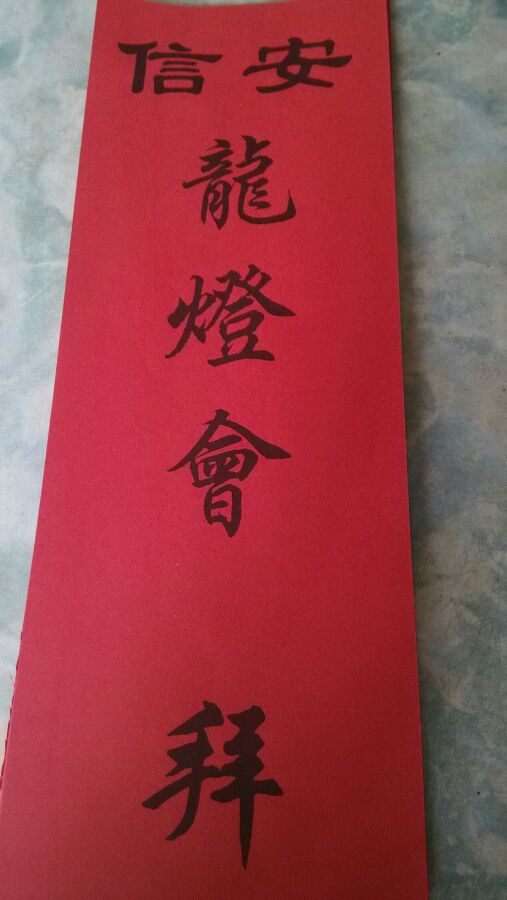 安信
龍燈會
拜